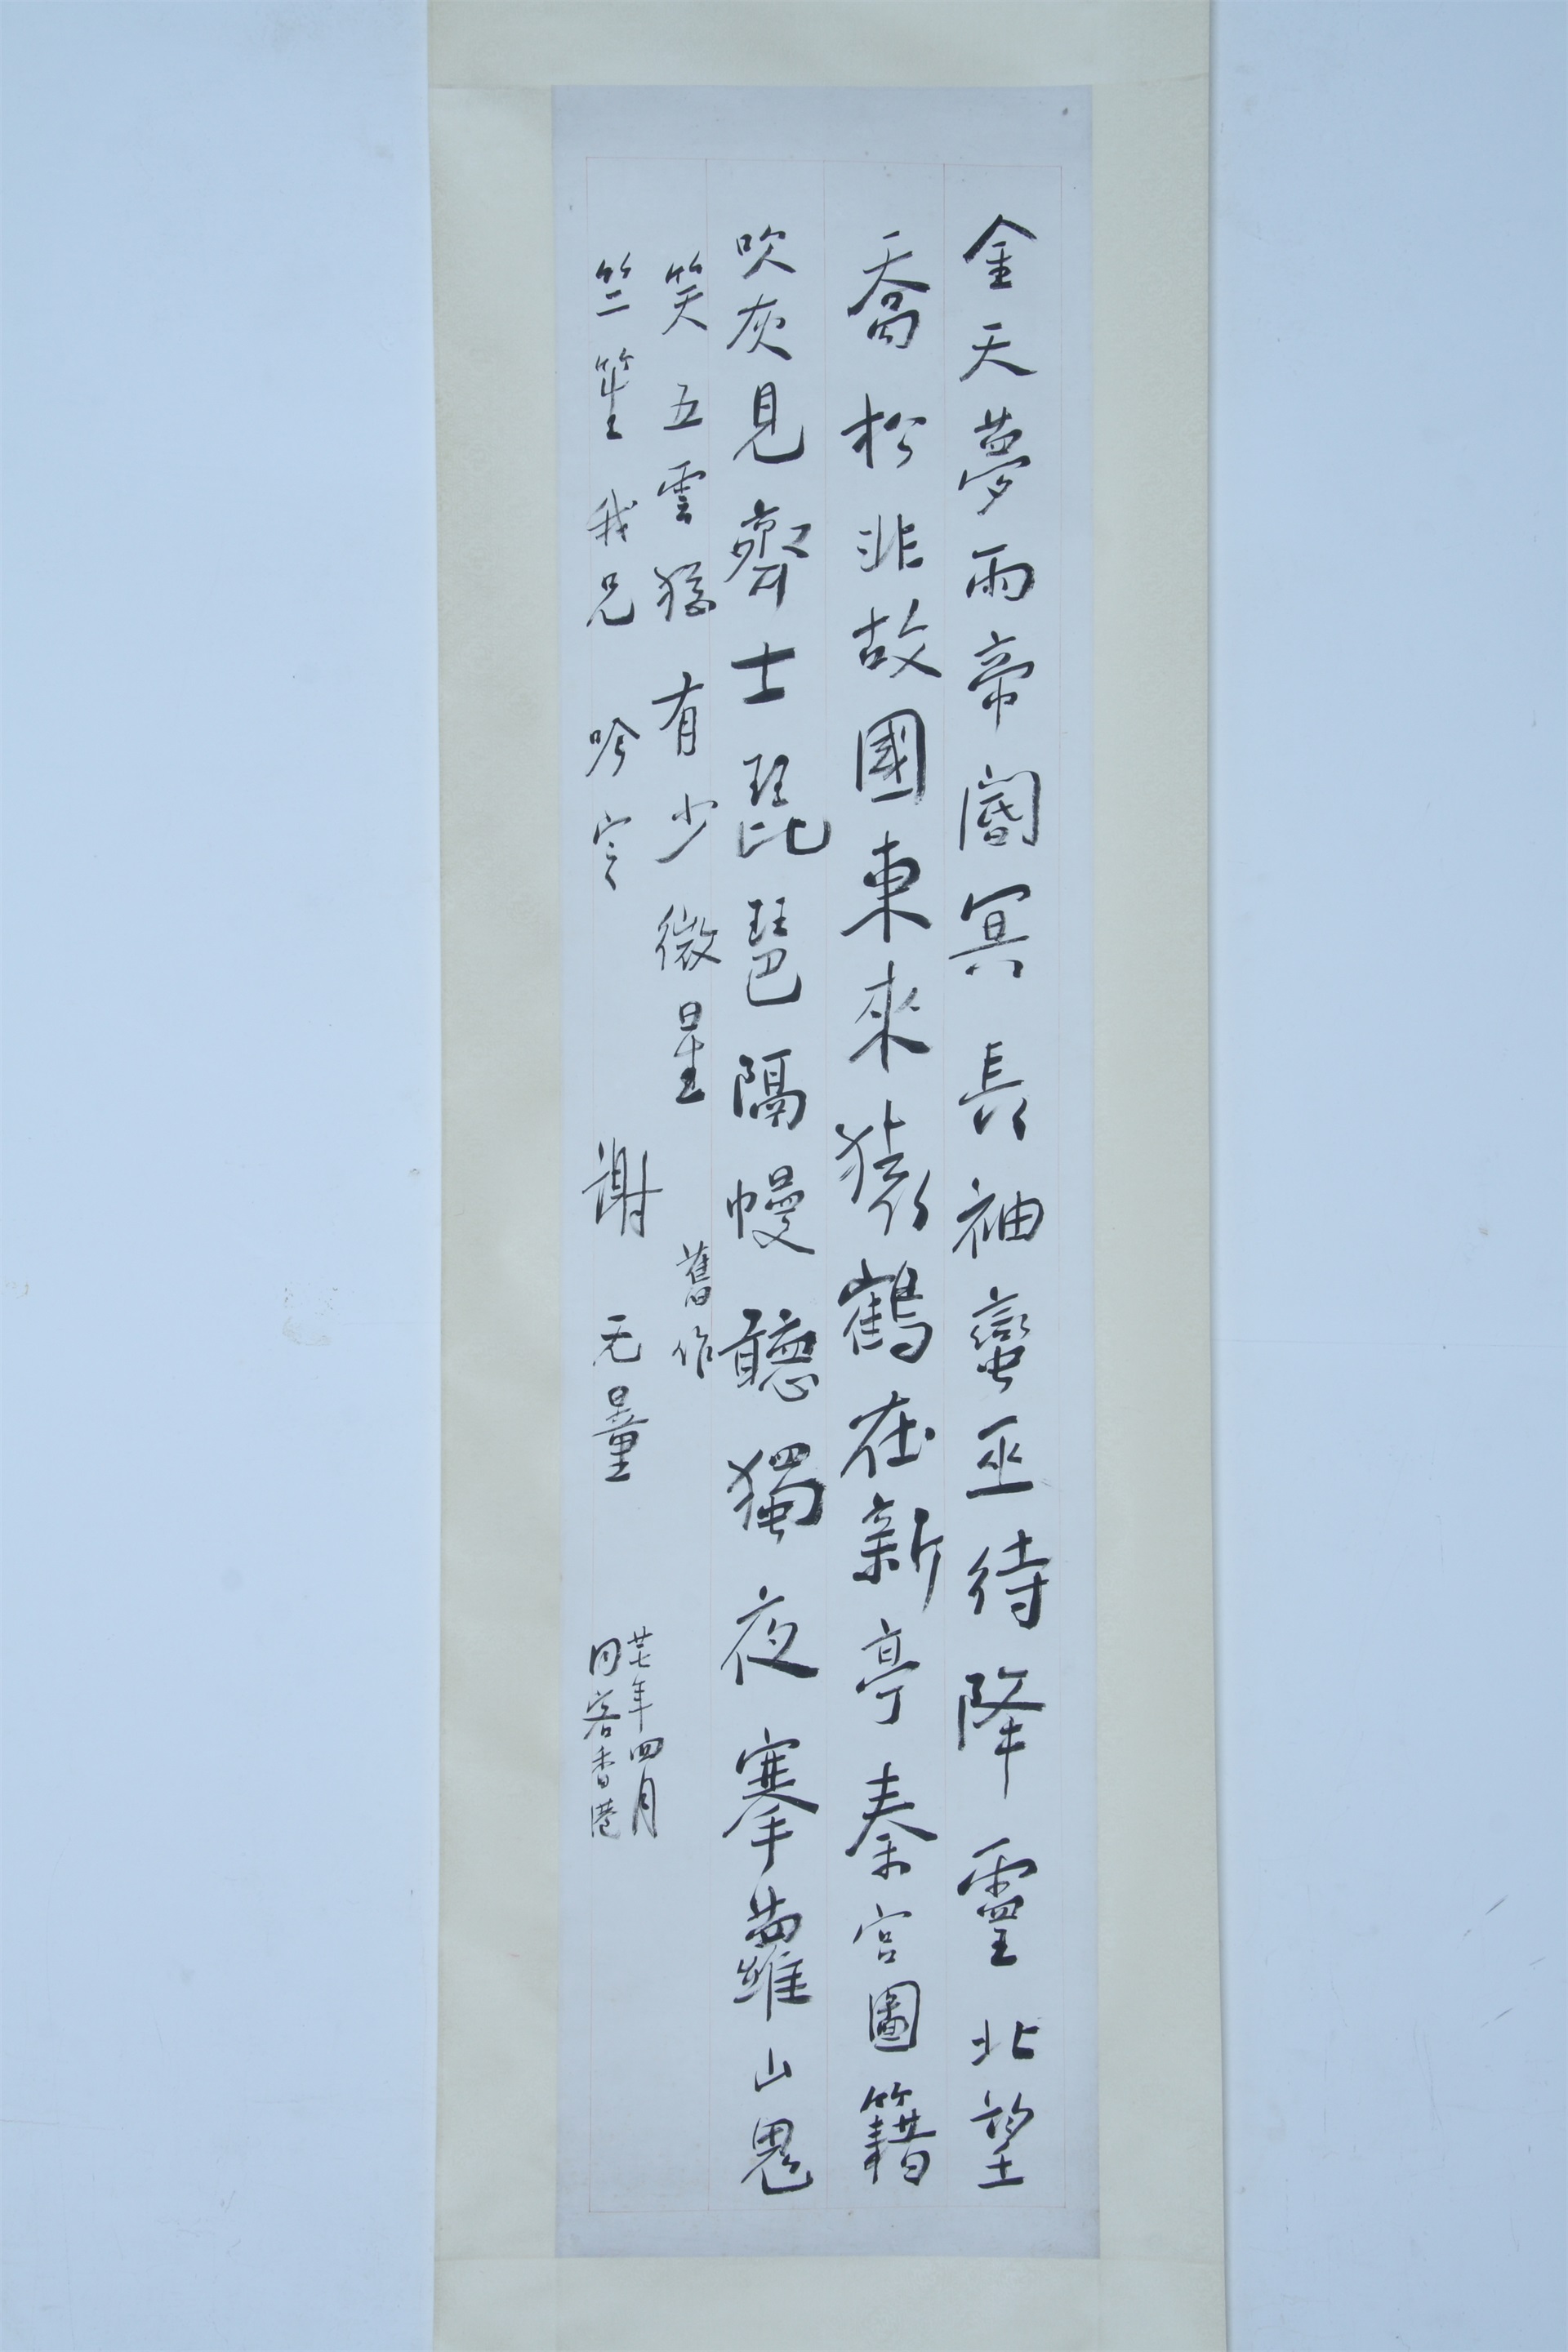 金天夢雨帝閽冥長袖蠻巫待降靈北望
喬松非故國東來猿鶴在新亭秦宮圖籍
吹灰見齊士琵琶隔幔聽獨夜搴蘿山鬼
笑五雲猶有少微星
舊作
竺笙我兄吟定
謝无量
廿七年四月
同客香港